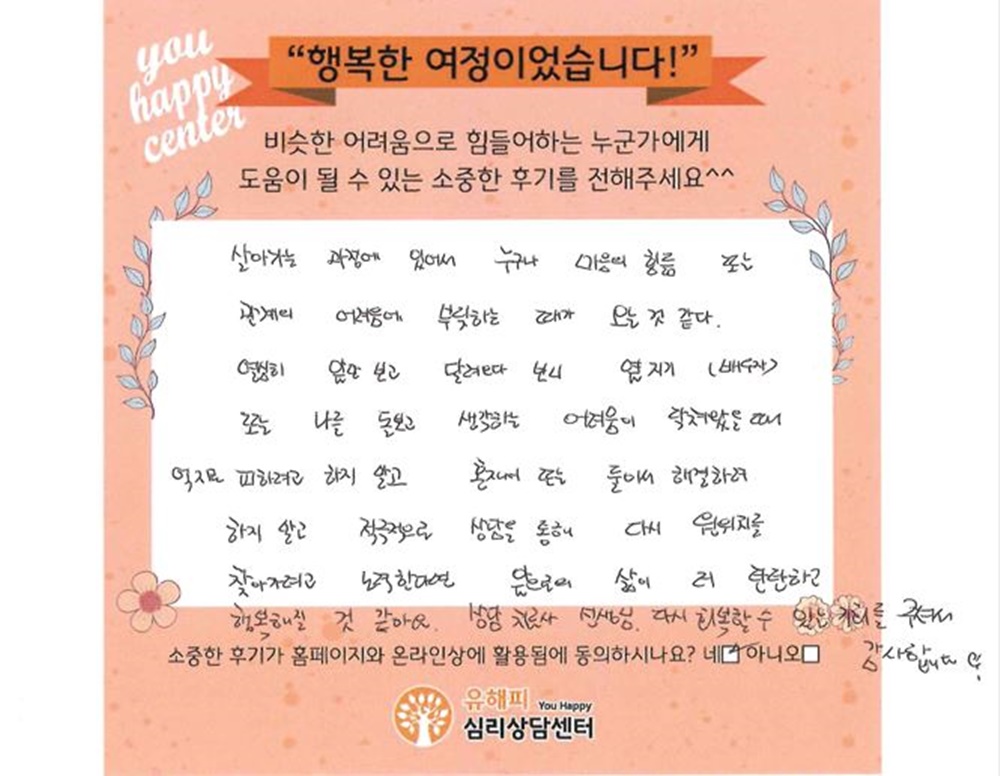 you
happy
center
“행복한 여정이었습니다!”
비슷한 어려움으로 힘들어하는 누군가에게
도움이 될 수 있는 소중한 후기를 전해주세요^^
살아가는 과정에 있어서 누구나 마음의 힘듦 또는
관계의 어려움에 부딪하는 때가 오는 것 같다.
열심히 앞만 보고 달려오다 보니 옆지기 (배우자)
또는 나를 돌보고 생각하는 어려움이 닥쳐왔을 때
억지로 피하려고 하지 말고 혼자서 또는 둘이서 해결하려
하지 말고 적극적으로 상담을 통해 다시 원위치를
찾아가려고 노력한다면 앞으로의 삶이 더 탄탄하고
행복해질 것 같아요. 상담 치료사 선생님. 다시 회복할 수 있는 기회를 주셔서
감사합니다
소중한 후기가 홈페이지와 온라인상에 활용됨에 동의하시나요? 네☑ 아니오☐
유해피 You Happy
심리상담센터